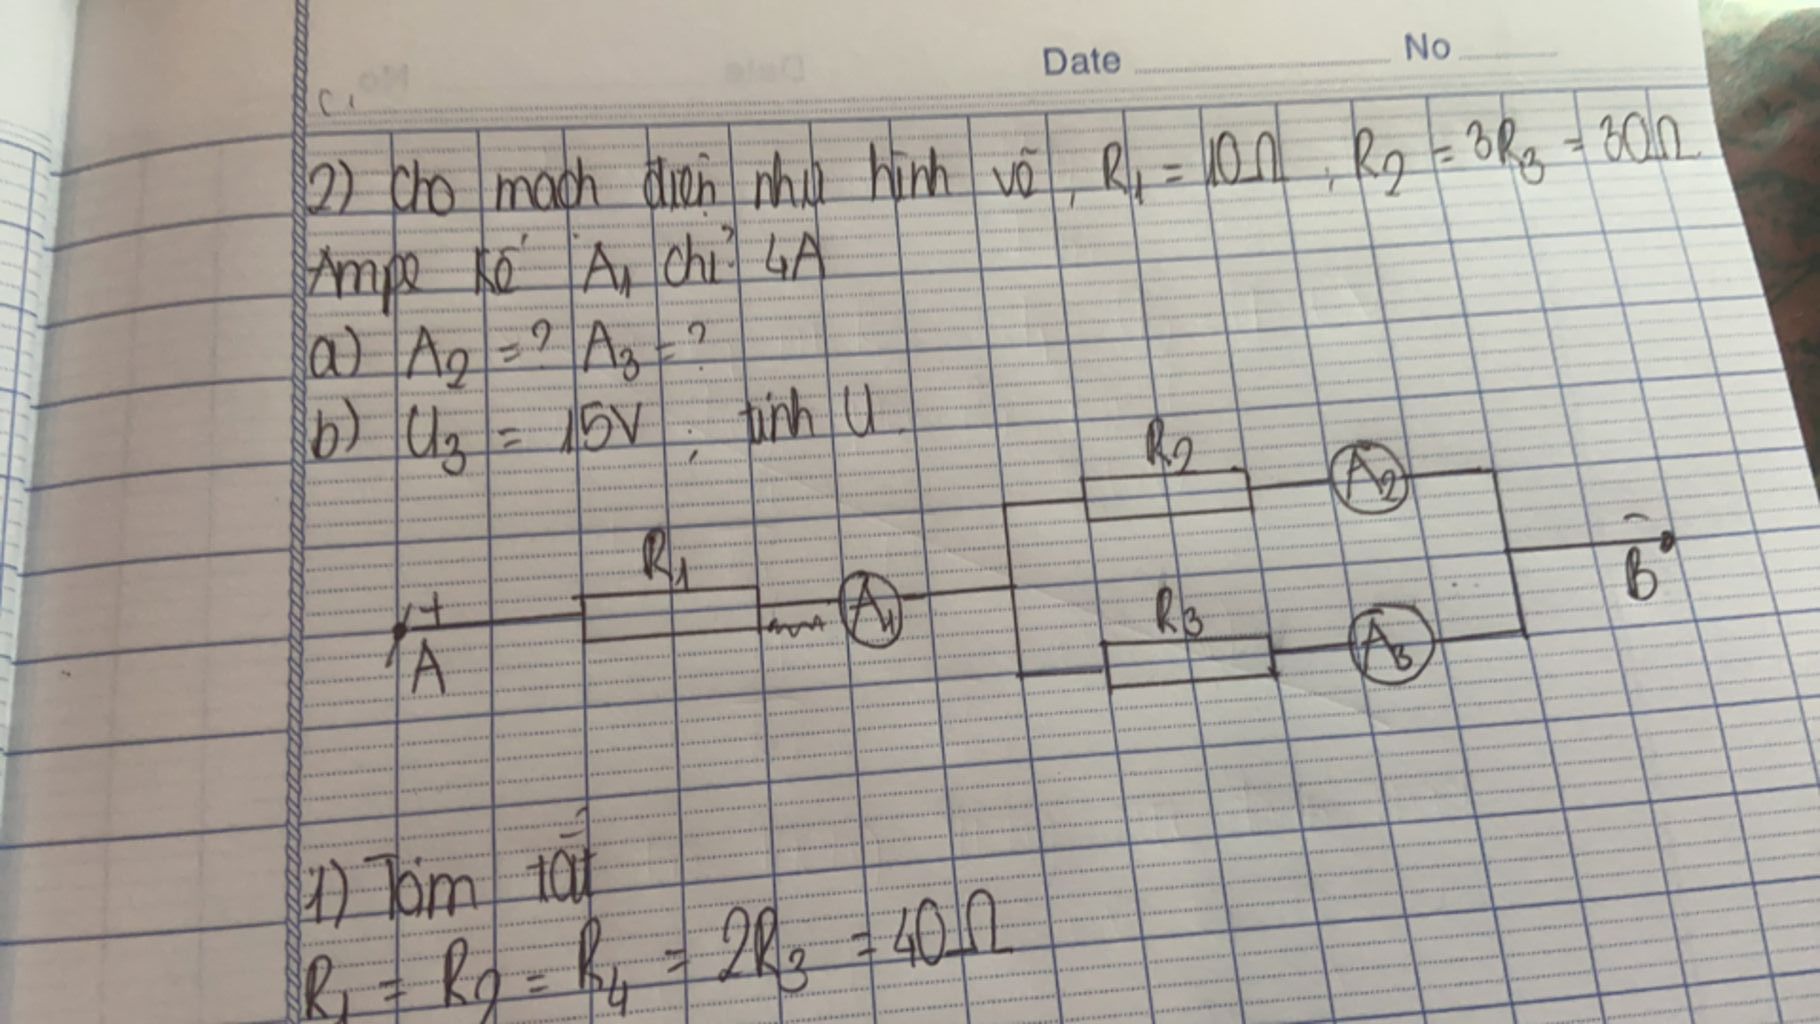 Date No
2) Cho mạch điện như hình vẽ, R1 = 10Ω, R2 = 3R3 = 30Ω
Ampe kế A1 chỉ 4A
a) A2 = ? A3 = ?
b) U3 = 15V ; tính U
R2 A2
R1 A1
+ A
R3 A3
- B
1) Tóm tắt
R1 = R2 = R4 = 2R3 = 40Ω